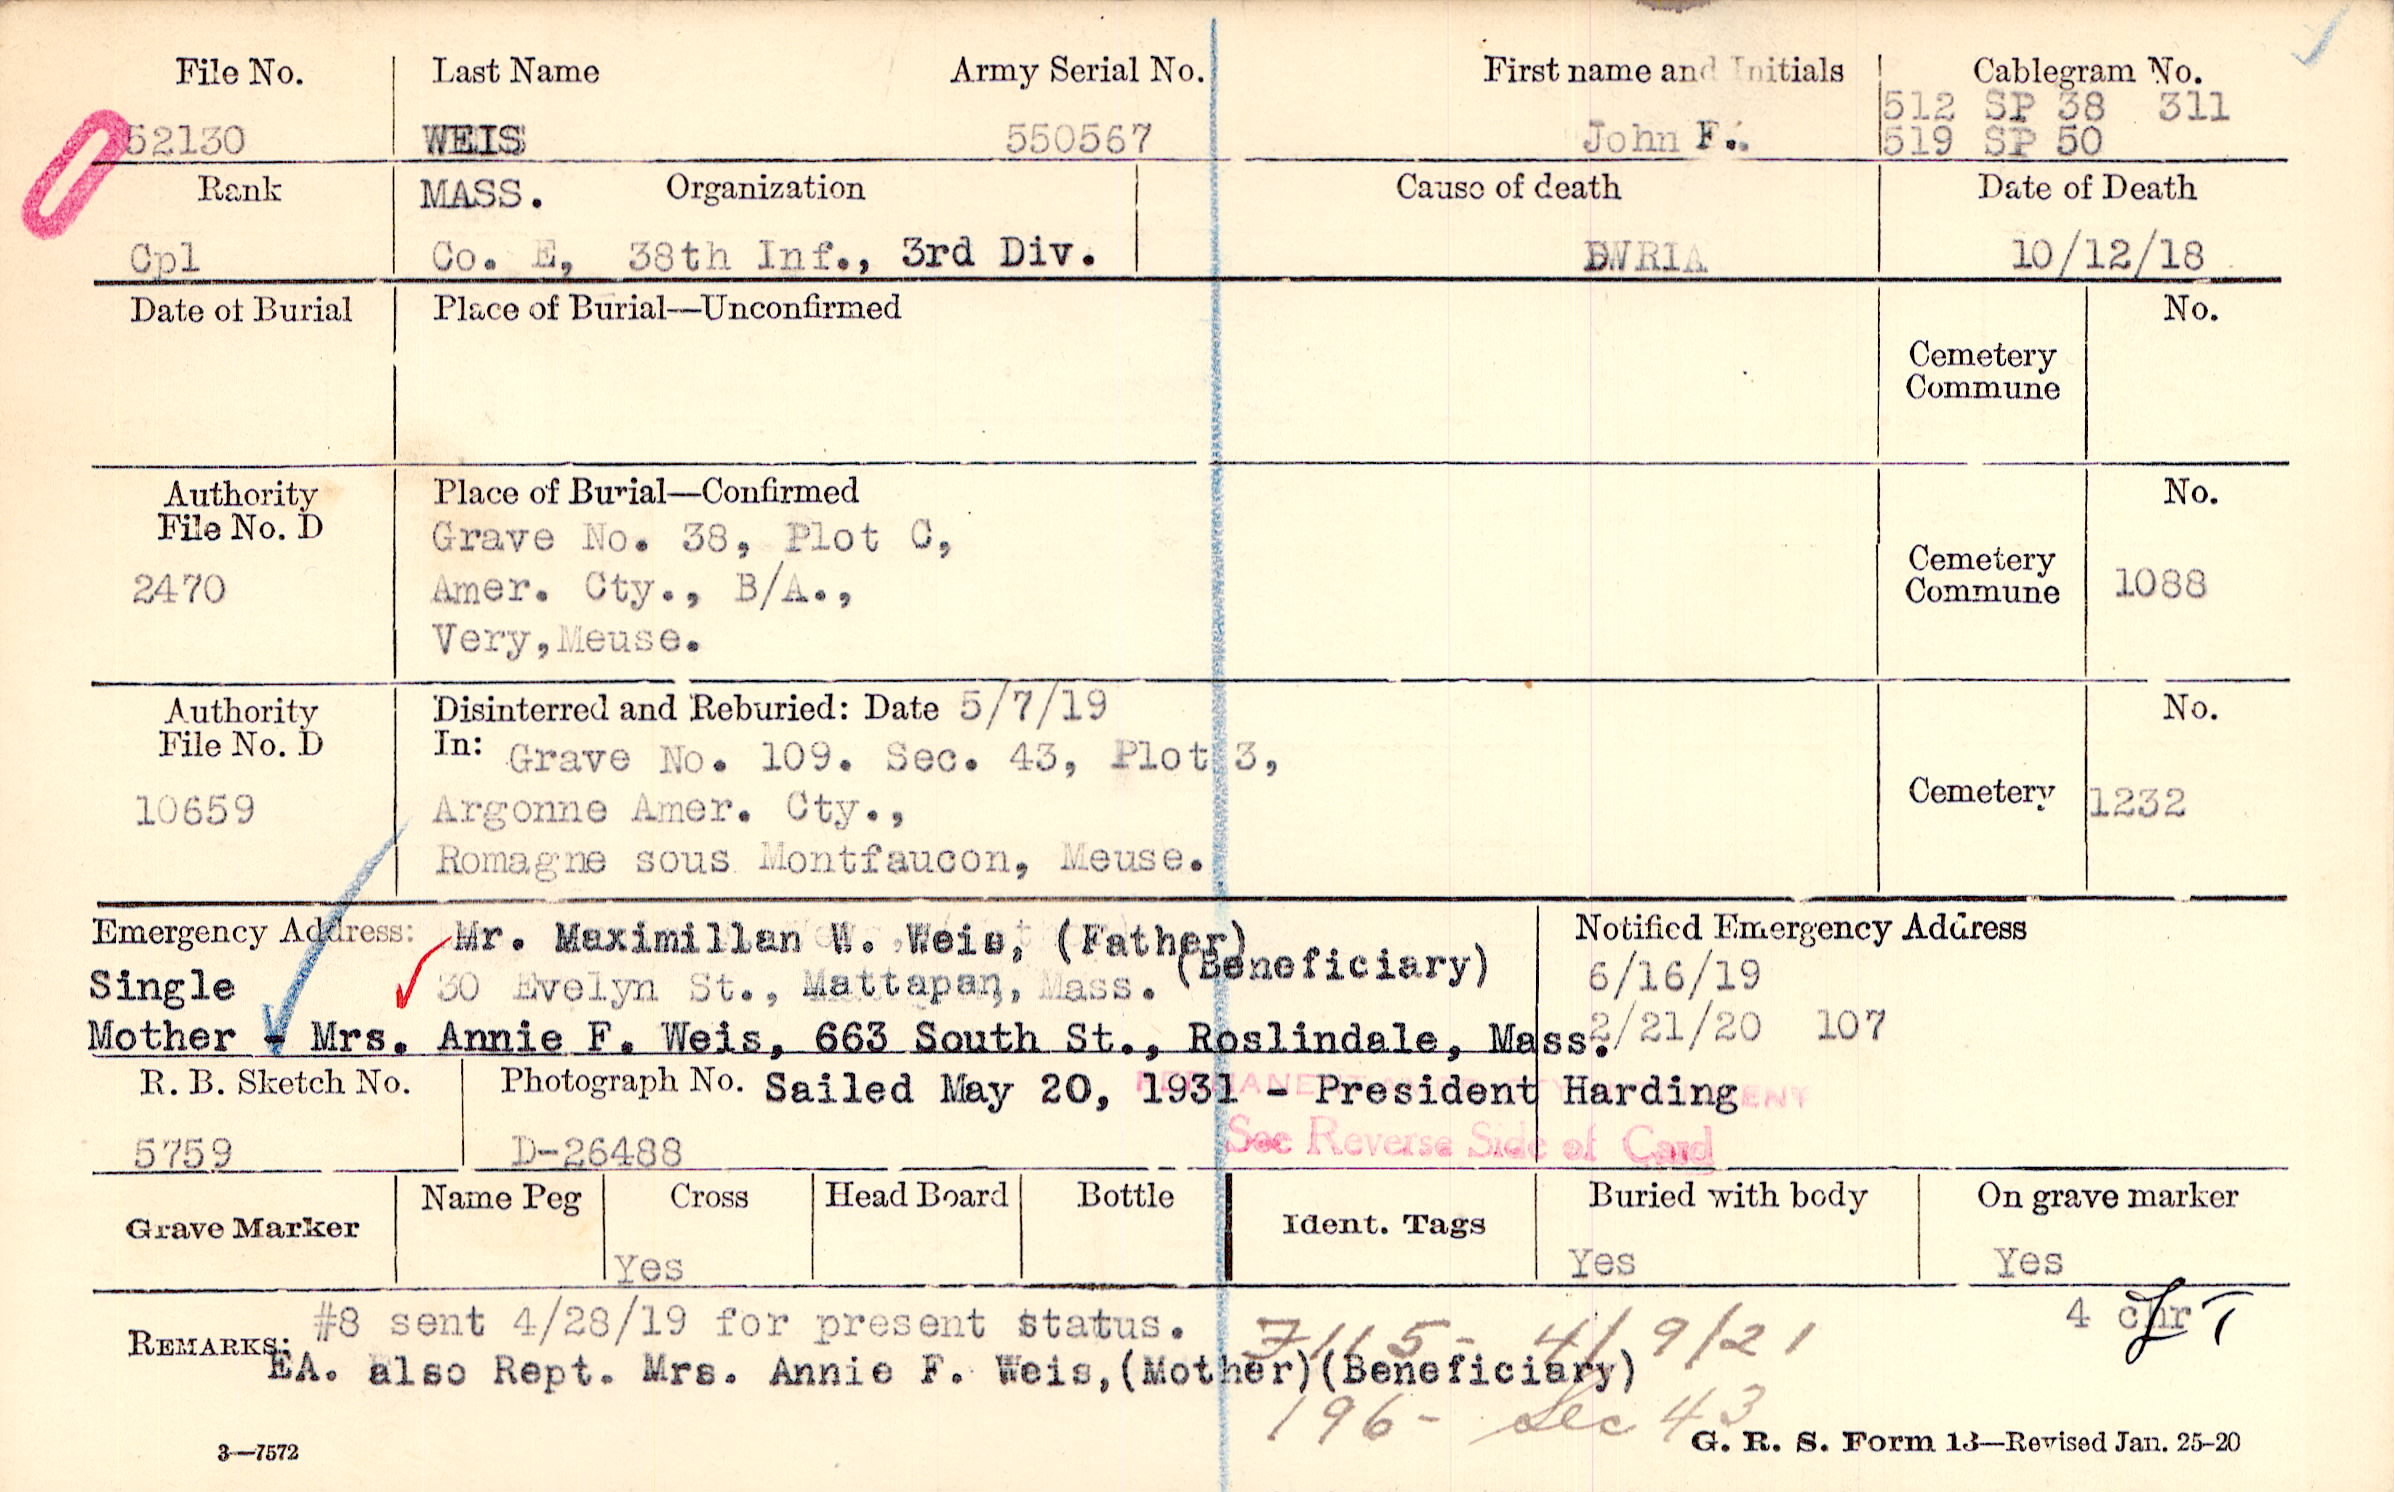 File No. Last Name Army Serial No. First name and Initials Cablegram No.
512 SP 38 311
52130 WEIS 550567 John F. 519 SP 50
Rank MASS. Organization Cause of death Date of Death
Cpl Co. E, 38th Inf., 3rd Div. DWRIA 10/12/18
Date of Burial Place of Burial—Unconfirmed No.
Cemetery
Commune
Authority Place of Burial—Confirmed No.
File No. D Grave No. 38, Plot C,
2470 Amer. Cty., B/A., Cemetery
Commune 1088
Very,Meuse.
Authority Disinterred and Reburied: Date 5/7/19 No.
File No. D In: Grave No. 109. Sec. 43, Plot 3,
10659 Argonne Amer. Cty., Cemetery 1232
Romagne sous Montfaucon, Meuse.
Emergency Address: Mr. Maximillan W. Weis, (Father) Notified Emergency Address
(Beneficiary)
Single 30 Evelyn St., Mattapan, Mass. 6/16/19
Mother - Mrs. Annie F. Weis, 663 South St., Roslindale, Mass. 2/21/20 107
R. B. Sketch No. Photograph No. Sailed May 20, 1931 - President Harding
5759 D-26488 See Reverse Side of Card
Grave Marker Name Peg Cross Head Board Bottle Ident. Tags Buried with body On grave marker
Yes Yes Yes
#8 sent 4/28/19 for present status. 7115- 4/9/21 4 chr
REMARKS: EA. also Rept. Mrs. Annie F. Weis,(Mother)(Beneficiary)
196- Sec 43
3—7572 G. R. S. Form 13—Revised Jan. 25-20